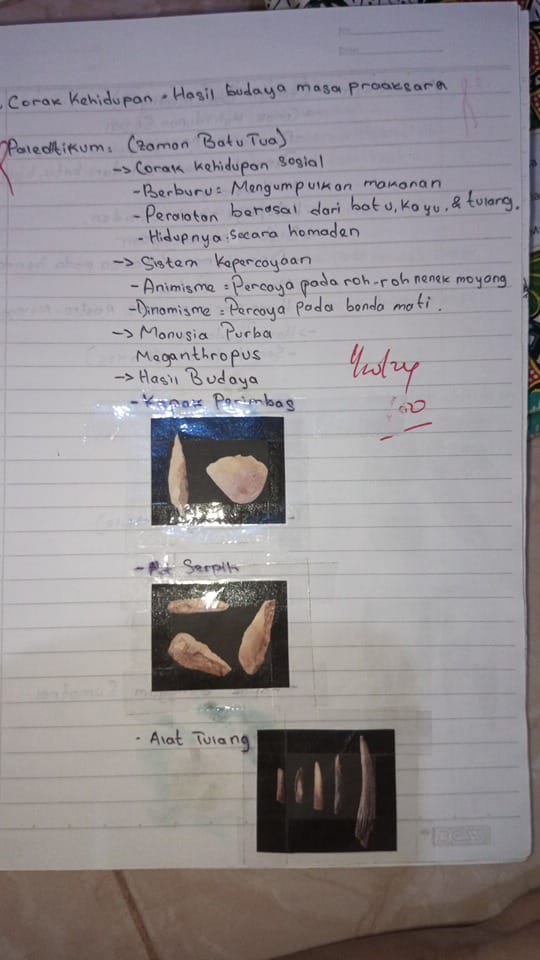 No:
Date:
Corak Kehidupan & Hasil budaya masa praaksara
Paleoltikum: (Zaman Batu Tua)
→ Corak kehidupan sosial
- Berburu: Mengumpulkan makanan
- Peralatan berasal dari batu, kayu, & tulang.
- Hidupnya secara homaden
→ Sistem Kepercayaan
- Animisme: Percaya pada roh-roh nenek moyang
- Dinamisme: Percaya pada benda mati.
→ Manusia Purba
Meganthropus
→ Hasil Budaya
- Kapak Perimbas
- Serpih
- Alat Tulang